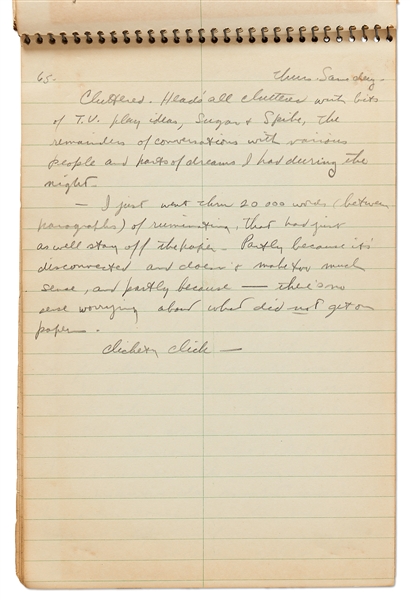 65. Thurs. Same day -
Cluttered. Head's all cluttered with bits
of T.V. play ideas, Sugar & Spike, the
remainders of conversations with various
people and parts of dreams I had during the
night.
— I just went thru 20 000 words (between
paragraphs) of ruminating, that had just
as well stay off the paper - Partly because it's
disconnected and doesn't make too much
sense, and partly because — there's no
use worrying about what did not get on
paper —.
clickety click —